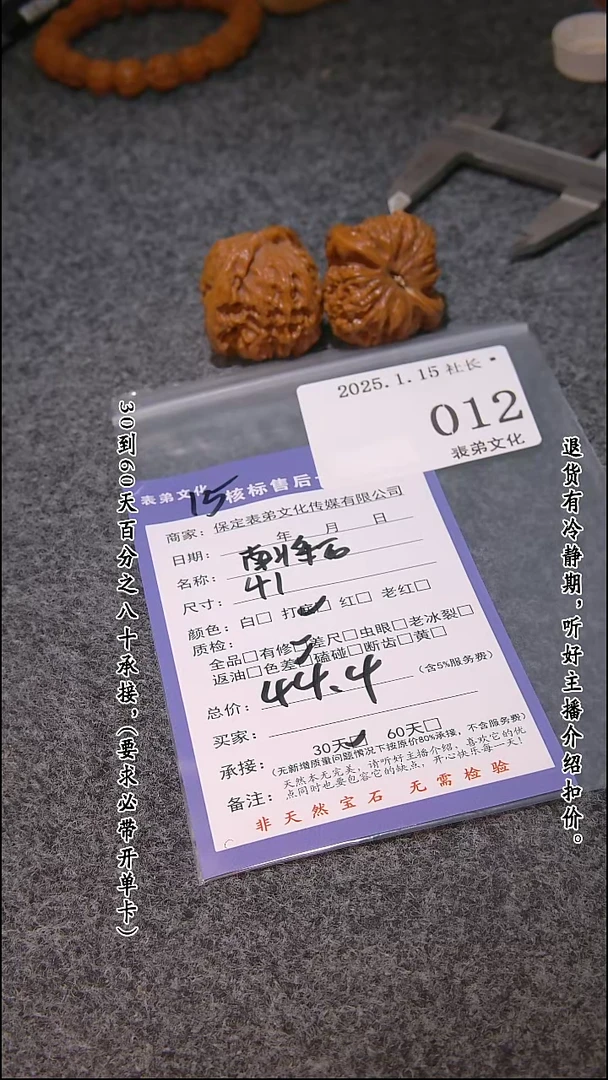 2025.1.15 社长
012
表弟文化
表弟文化
15
核标售后
商家：保定表弟文化传媒有限公司
日期： 年 月 日
名称：南将石
尺寸：41
颜色：白□ 打 红□ 老红□
质检：
全品□有修 差尺□虫眼□老冰裂□
返油□色差 磕碰□断齿□黄□
总价：44.4 (含5%服务费)
买家：
承接： 30天 60天□
(无新增质量问题情况下按原价80%承接，不含服务费)
备注：天然本无完美，请听好主播介绍，喜欢它的优
点同时也要包容它的缺点，开心快乐每一天！
非天然宝石 无需检验
30到60天百分之八十承接，（要求必带开单卡）
退货有冷静期，听好主播介绍扣价。